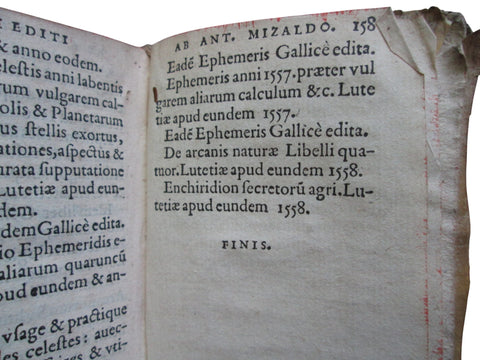 EDITI
& anno eodem.
elestis anni labentis
rum vulgarem calcu-
olis & Planetarum
us stellis exortus,
ationes, aspectus &
urata supputatione
Lutetiæ apud eun-
dem.
dem Gallicè edita.
io Ephemeridis e-
aliarum quarucũ
dem & an-
vsage & practique
es celestes: auec-
AB ANT. MIZALDO. 158
Eadẽ Ephemeris Gallicè edita.
Ephemeris anni 1557. præter vul
garem aliarum calculum &c. Lute
tiæ apud eundem 1557.
Eadẽ Ephemeris Gallicè edita.
De arcanis naturæ Libelli qua-
tuor. Lutetiæ apud eundem 1558.
Enchiridion secretorũ agri. Lu-
tetiæ apud eundem 1558.
FINIS.